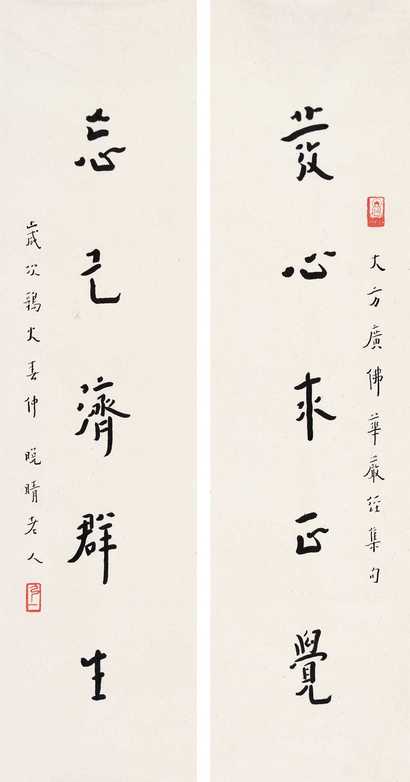 大方廣佛華嚴經集句
發心求正覺
忘己濟群生
歲次鶉火春仲 晚晴老人